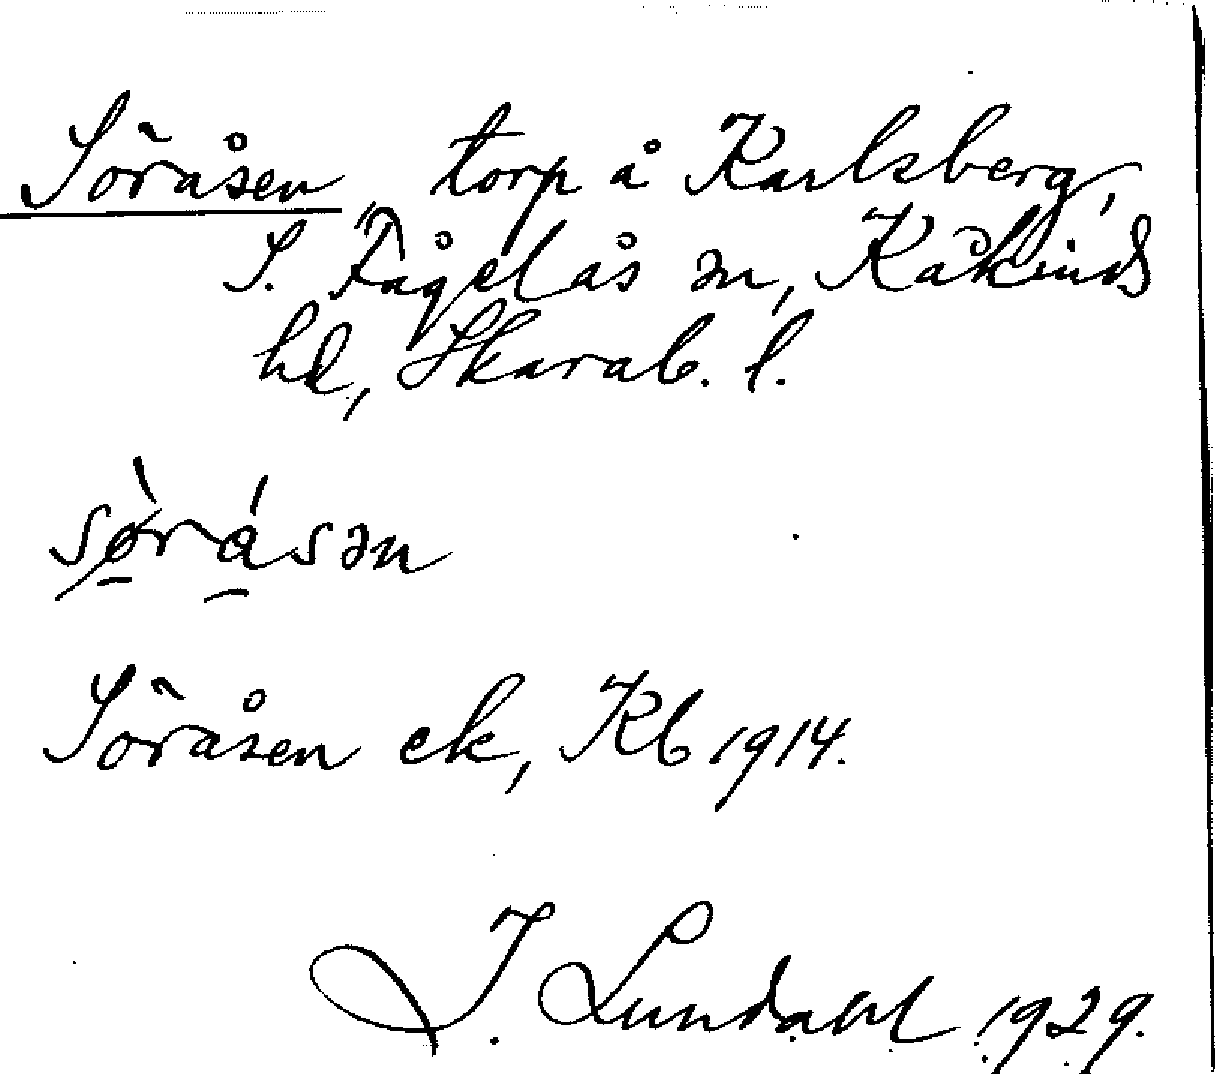 Söråsen, torp å Karlsberg,
S. Fågelås sn, Kåkinds
hd, Skarab. l.
sø̀rásən
Söråsen ek, Kb 1914.
I. Lundahl 1929.